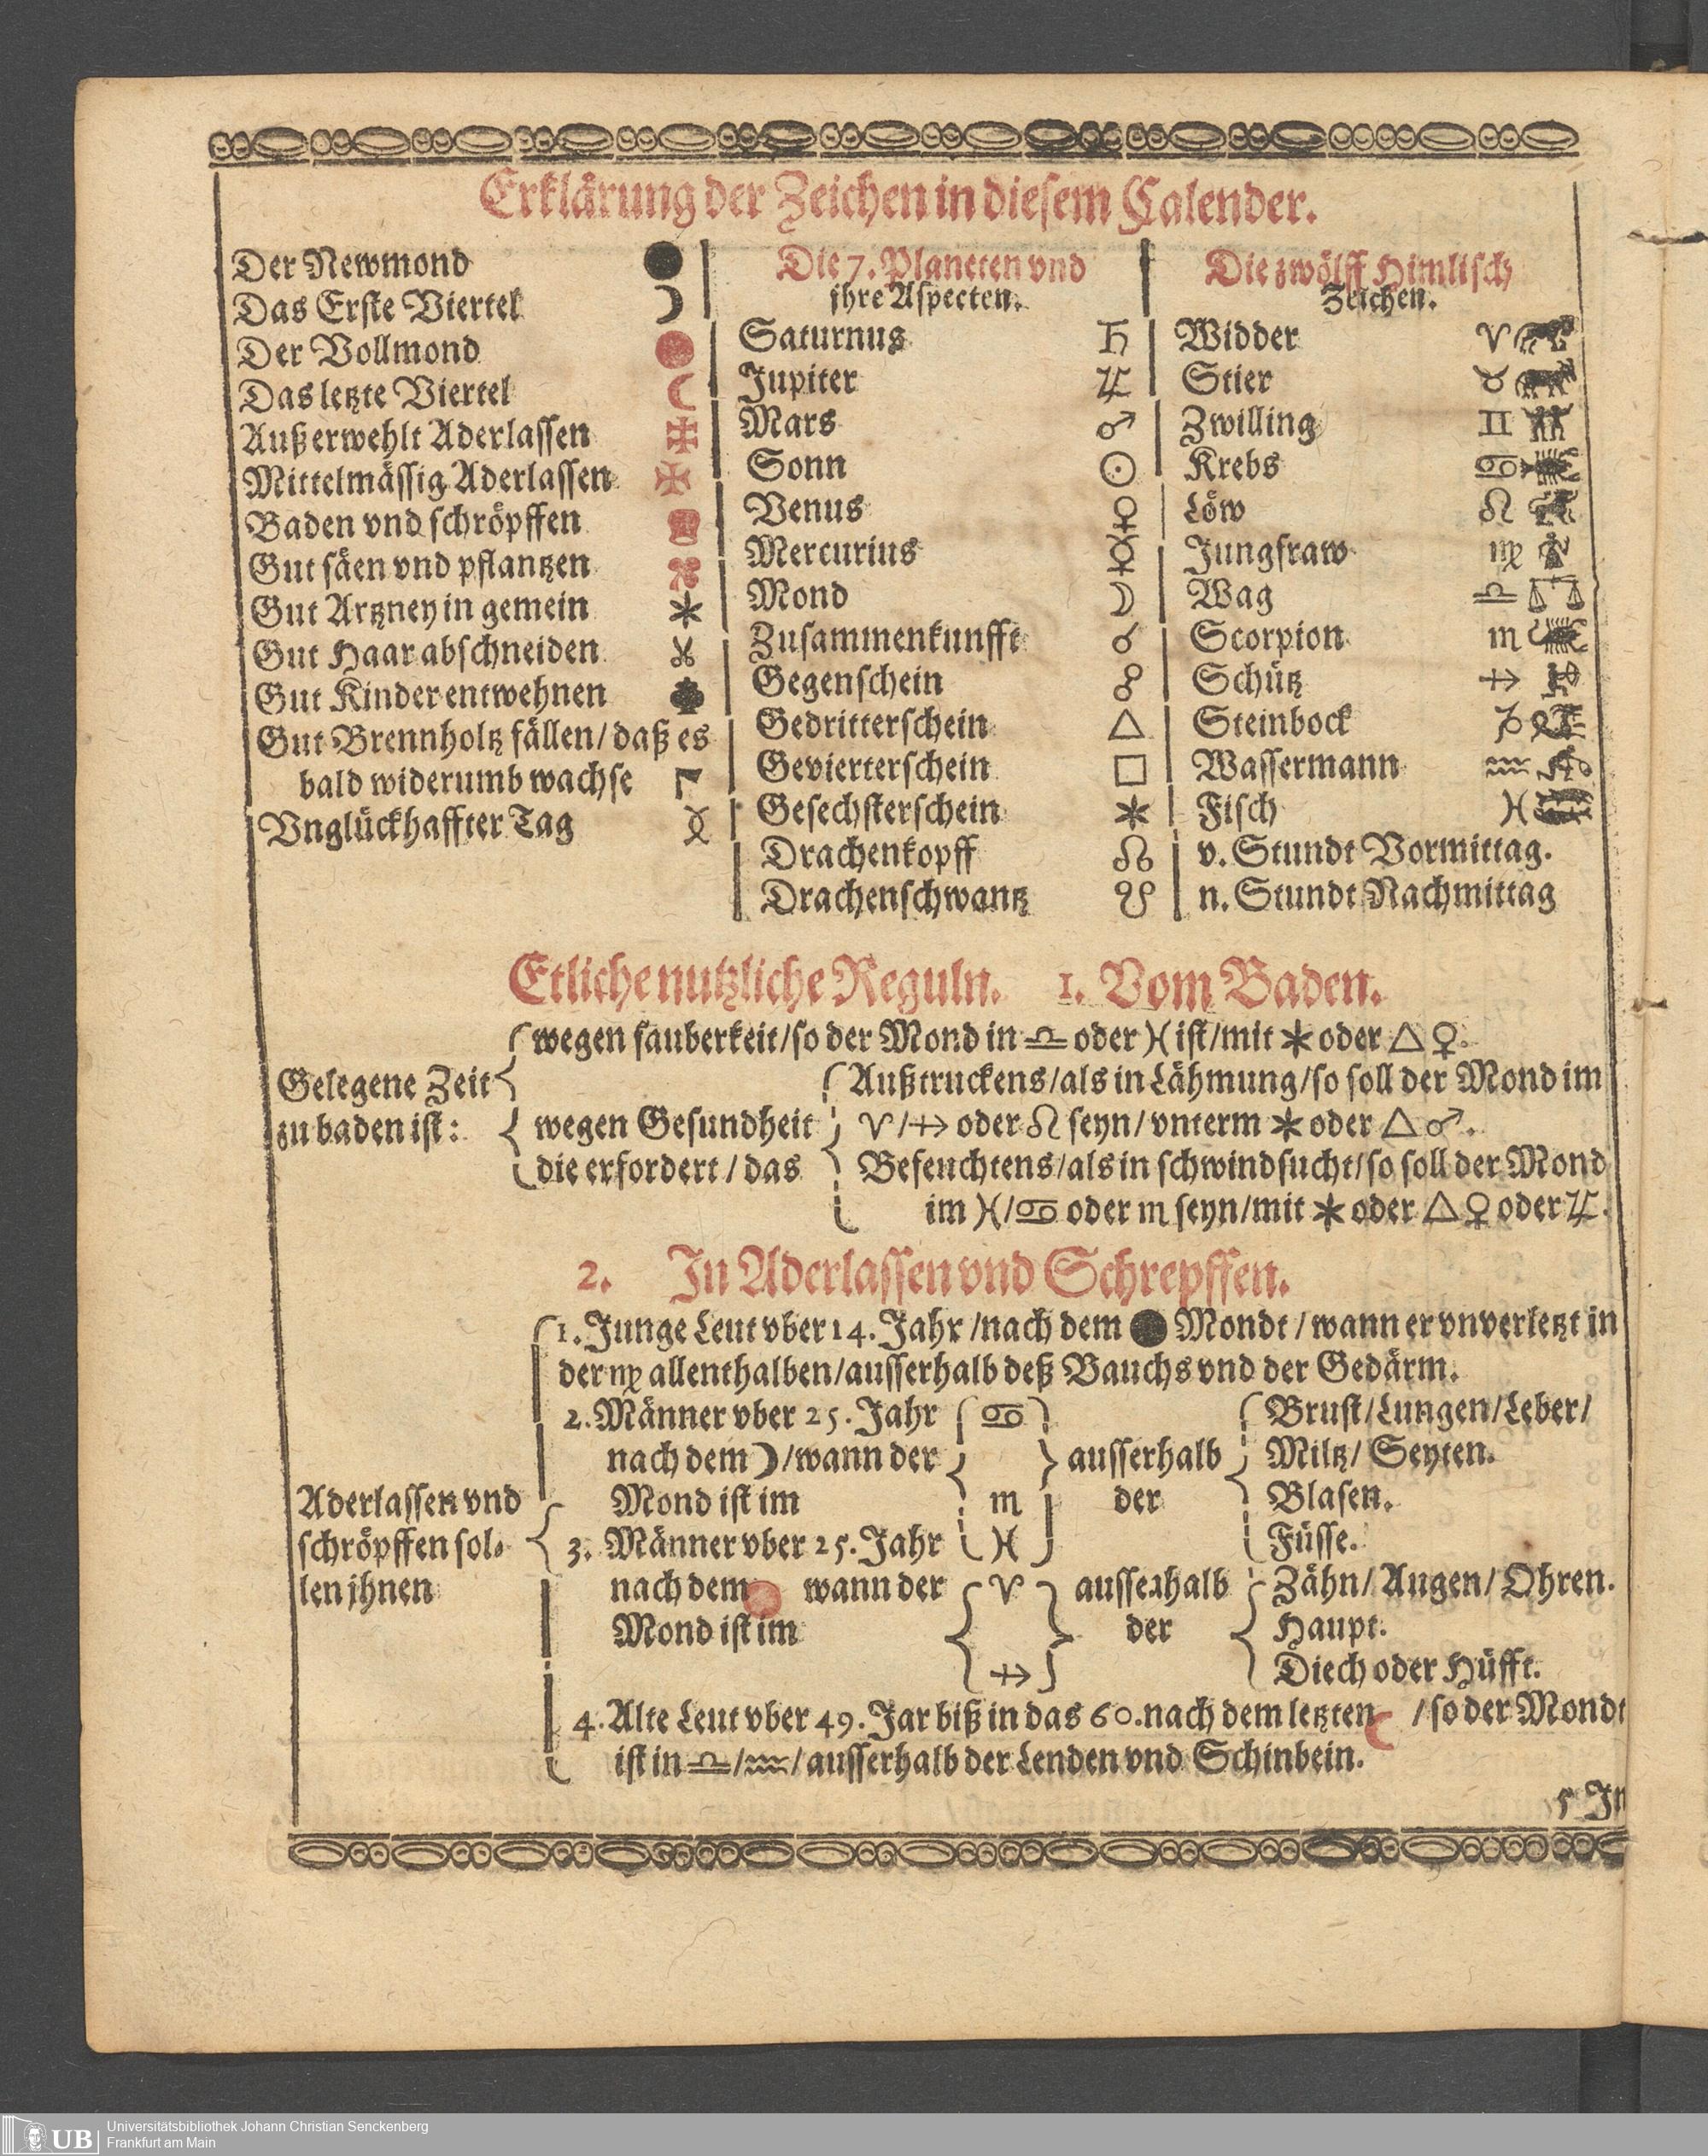 Erklärung der Zeichen in diesem Calender.
Der Newmond ●
Das Erste Viertel ☽
Der Vollmond
Das letzte Viertel ☾
Außerwehlt Aderlassen
Mittelmässig Aderlassen ✠
Baden vnd schröpffen
Gut säen vnd pflantzen
Gut Artzney in gemein *
Gut Haar abschneiden
Gut Kinder entwehnen
Gut Brennholtz fällen/ daß es
bald widerumb wachse
Vnglückhaffter Tag
Die 7. Planeten vnd
jhre Aspecten.
Saturnus ♄
Jupiter ♃
Mars ♂
Sonn ☉
Venus ♀
Mercurius ☿
Mond ☽
Zusammenkunfft ☌
Gegenschein ☍
Gedritterschein △
Gevierterschein □
Gesechsterschein *
Drachenkopff ☊
Drachenschwantz ☋
Die zwölff Himlisch
Zeichen.
Widder ♈
Stier ♉
Zwilling ♊
Krebs ♋
Löw ♌
Jungfraw ♍
Wag ♎
Scorpion ♏
Schütz ♐
Steinbock ♑
Wassermann ♒
Fisch ♓
v. Stundt Vormittag.
n. Stundt Nachmittag
Etliche nutzliche Reguln. 1. Vom Baden.
Gelegene Zeit
zu baden ist:
wegen sauberkeit/so der Mond in ♎ oder ♓ ist/mit * oder △ ♀.
wegen Gesundheit
die erfordert/ das
Außtruckens/als in Lähmung/so soll der Mond im
♈/♐ oder ♌ seyn/ vnterm * oder △ ♂.
Befeuchtens/als in schwindsucht/so soll der Mond
im ♓/♋ oder ♏ seyn/mit * oder △ ♀ oder ♃.
2. In Aderlassen vnd Schrepffen.
Aderlassen vnd
schröpffen sol-
len jhnen
1. Junge Leut vber 14. Jahr /nach dem ● Mondt / wann er vnverletzt in
der ♍ allenthalben/ausserhalb deß Bauchs vnd der Gedärm.
2. Männer vber 25. Jahr
nach dem ☽/wann der
Mond ist im
♋
♏
♓
ausserhalb
der
Brust/Lungen/Leber/
Miltz/ Seyten.
Blasen.
Füsse.
3. Männer vber 25. Jahr
nach dem wann der
Mond ist im
♈
♐
ausserhalb
der
Zähn/ Augen/ Ohren.
Haupt.
Diech oder Hüfft.
4. Alte Leut vber 49. Jar biß in das 60. nach dem letzten ☾ /so der Mondt
ist in ♎/♒/ ausserhalb der Lenden vnd Schinbein.
5 In
UB Universitätsbibliothek Johann Christian Senckenberg
Frankfurt am Main